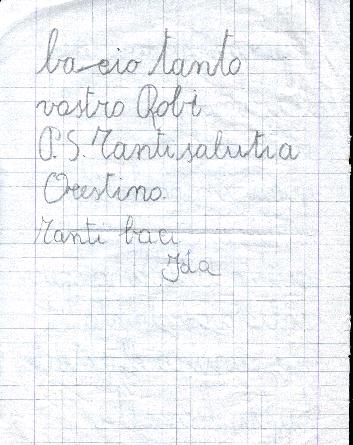 bacio tanto
vostro Robi
P.S. Tanti saluti a
Orestino.
Tanti baci
Ida